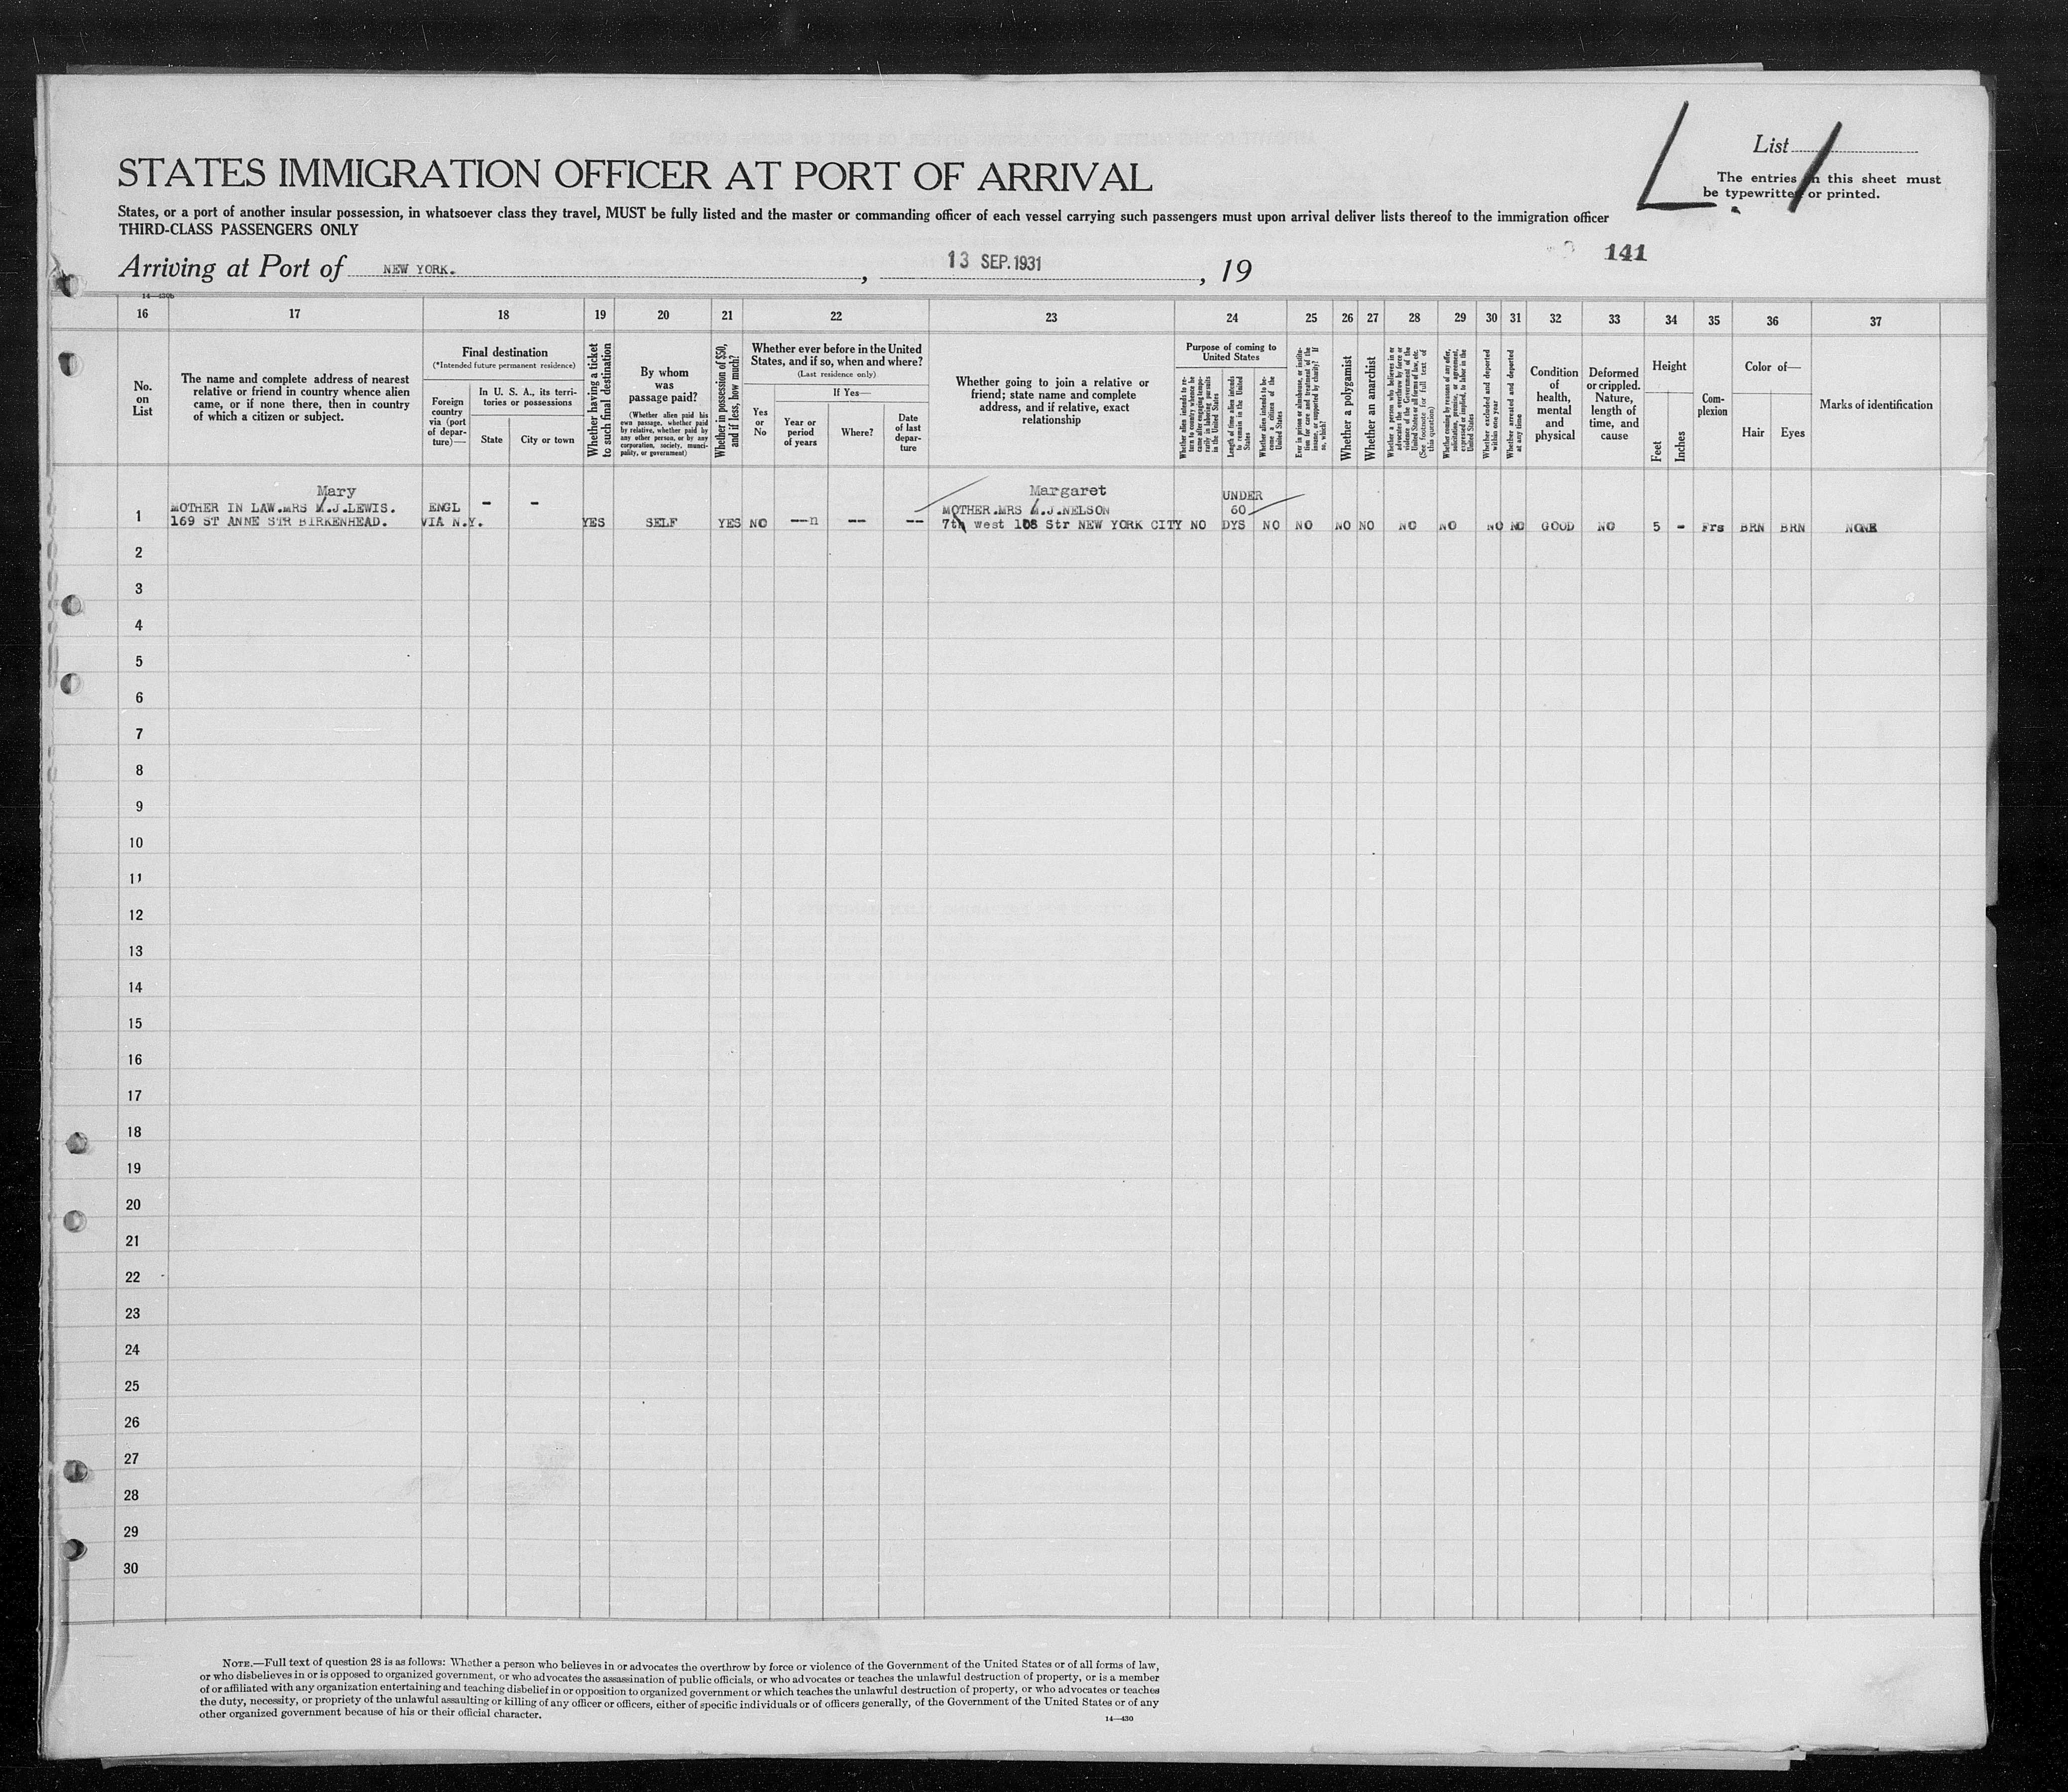 List
The entries on this sheet must
be typewritten or printed.
STATES IMMIGRATION OFFICER AT PORT OF ARRIVAL
States, or a port of another insular possession, in whatsoever class they travel, MUST be fully listed and the master or commanding officer of each vessel carrying such passengers must upon arrival deliver lists thereof to the immigration officer
THIRD-CLASS PASSENGERS ONLY
141
Arriving at Port of NEW YORK. , 13 SEP. 1931 , 19
14—430b
16 17 18 19 20 21 22 23 24 25 26 27 28 29 30 31 32 33 34 35 36 37
No.
on
List
The name and complete address of nearest
relative or friend in country whence alien
came, or if none there, then in country
of which a citizen or subject.
Final destination
(*Intended future permanent residence)
Foreign
country
via (port
of depar-
ture)—
In U. S. A., its terri-
tories or possessions
State
City or town
Whether having a ticket
to such final destination
By whom
was
passage paid?
(Whether alien paid his
own passage, whether paid
by relative, whether paid by
any other person, or by any
corporation, society, munici-
pality, or government)
Whether in possession of $50,
and if less, how much?
Whether ever before in the United
States, and if so, when and where?
(Last residence only)
Yes
or
No
If Yes—
Year or
period
of years
Where?
Date
of last
depar-
ture
Whether going to join a relative or
friend; state name and complete
address, and if relative, exact
relationship
Purpose of coming to
United States
Whether alien intends to re-
turn to country whence he
came after engaging tempo-
rarily in laboring pursuits
in the United States
Length of time alien intends
to remain in the United
States
Whether alien intends to be-
come a citizen of the
United States
Ever in prison or almshouse, or institu-
tion for care and treatment of the
insane, or supported by charity? If
so, which?
Whether a polygamist
Whether an anarchist
Whether a person who believes in or
advocates the overthrow by force or
violence of the Government of the
United States or all forms of law, etc.
(See footnote for full text of
this question)
Whether coming by reasons of any offer,
solicitation, promise, or agreement,
expressed or implied, to labor in the
United States
Whether excluded and deported
within one year
Whether arrested and deported
at any time
Condition
of
health,
mental
and
physical
Deformed
or crippled.
Nature,
length of
time, and
cause
Height
Feet
Inches
Com-
plexion
Color of—
Hair
Eyes
Marks of identification
Mary
MOTHER IN LAW.MRS M.J.LEWIS.
169 ST ANNE STR BIRKENHEAD.
ENGL
VIA N.Y.
- -
YES SELF YES NO ---n -- --
Margaret
MOTHER.MRS M.J.NELSON
7th west 108 Str NEW YORK CITY
NO
UNDER
60
DYS
NO NO NO NO NO NO NO NO GOOD NO 5 - Frs BRN BRN NONE
1
2
3
4
5
6
7
8
9
10
11
12
13
14
15
16
17
18
19
20
21
22
23
24
25
26
27
28
29
30
NOTE.—Full text of question 28 is as follows: Whether a person who believes in or advocates the overthrow by force or violence of the Government of the United States or of all forms of law,
or who disbelieves in or is opposed to organized government, or who advocates the assassination of public officials, or who advocates or teaches the unlawful destruction of property, or is a member
of or affiliated with any organization entertaining and teaching disbelief in or opposition to organized government or which teaches the unlawful destruction of property, or who advocates or teaches
the duty, necessity, or propriety of the unlawful assaulting or killing of any officer or officers, either of specific individuals or of officers generally, of the Government of the United States or of any
other organized government because of his or their official character.
14—430